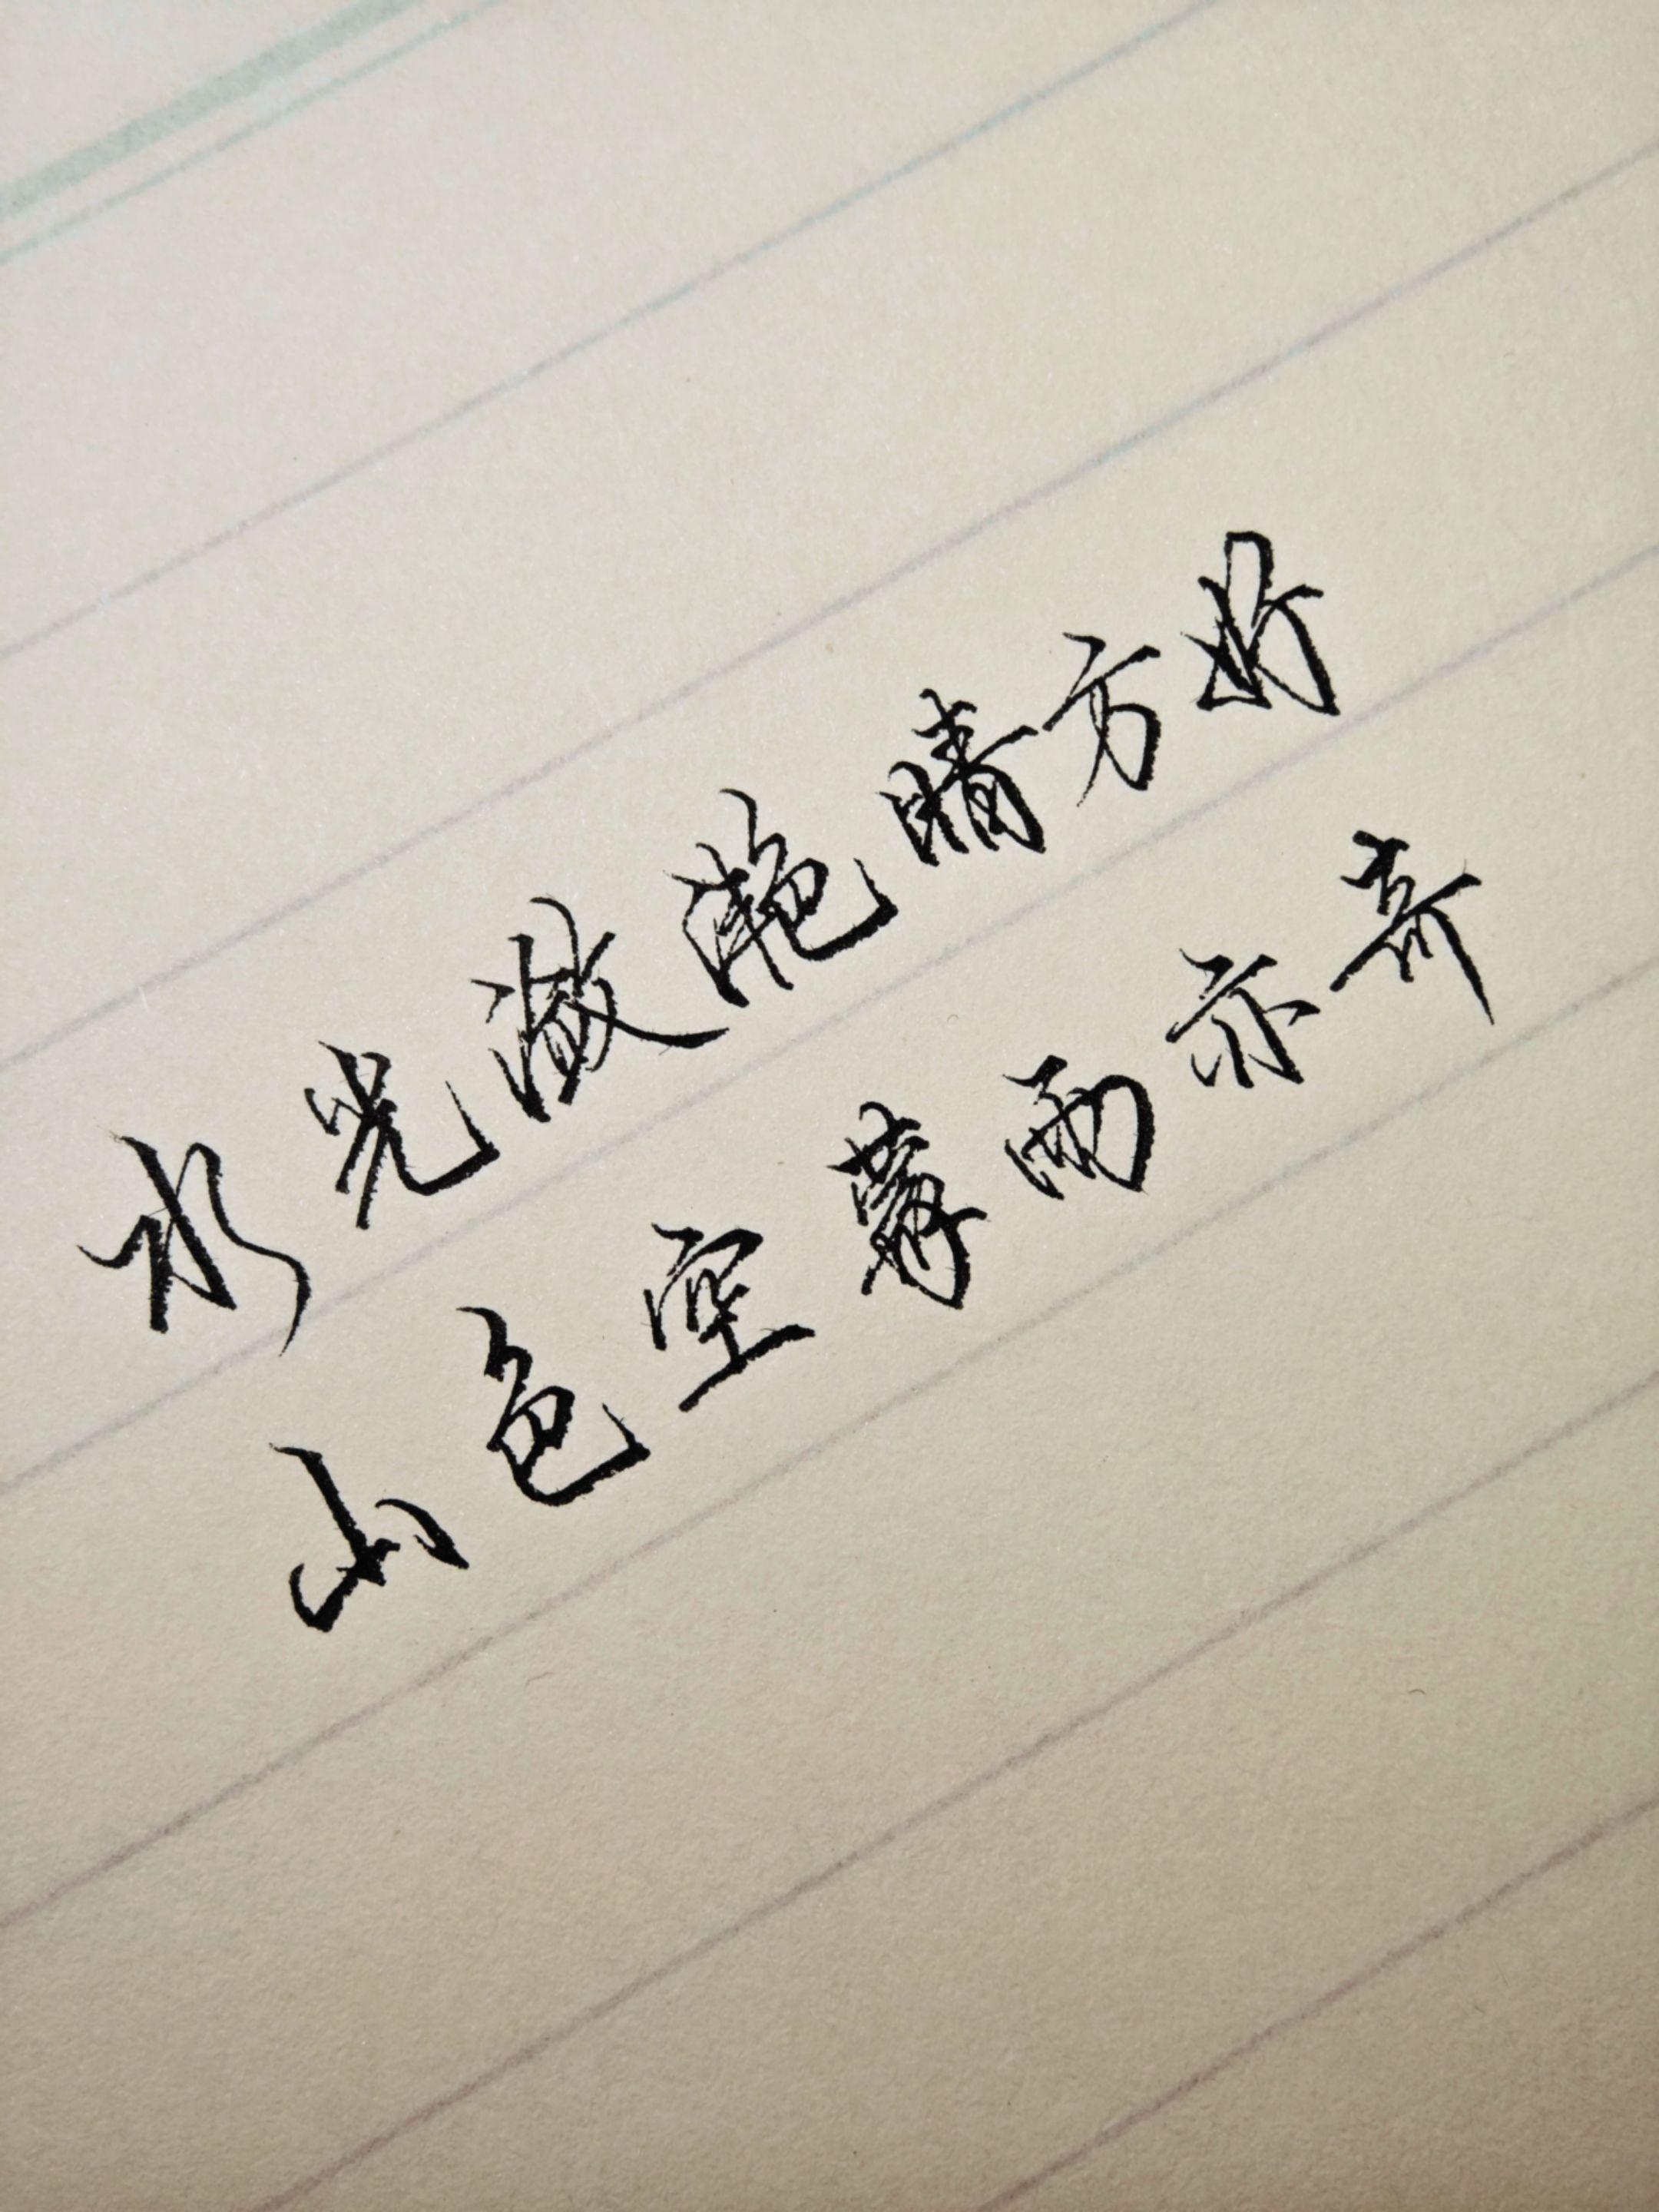 水光潋滟晴方好
山色空蒙雨亦奇